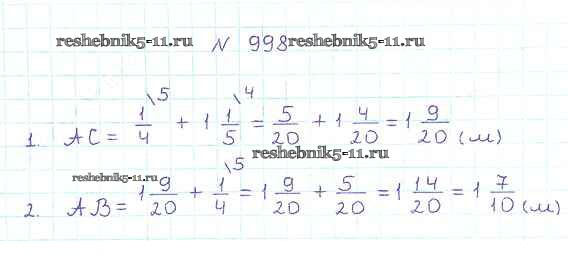 reshebnik5-11.ru N 998 reshebnik5-11.ru
1. AC = 1/4 \5 + 1 1/5 \4 = 5/20 + 1 4/20 = 1 9/20 (м)
reshebnik5-11.ru
reshebnik5-11.ru
2. AB = 1 9/20 + 1/4 \5 = 1 9/20 + 5/20 = 1 14/20 = 1 7/10 (м)